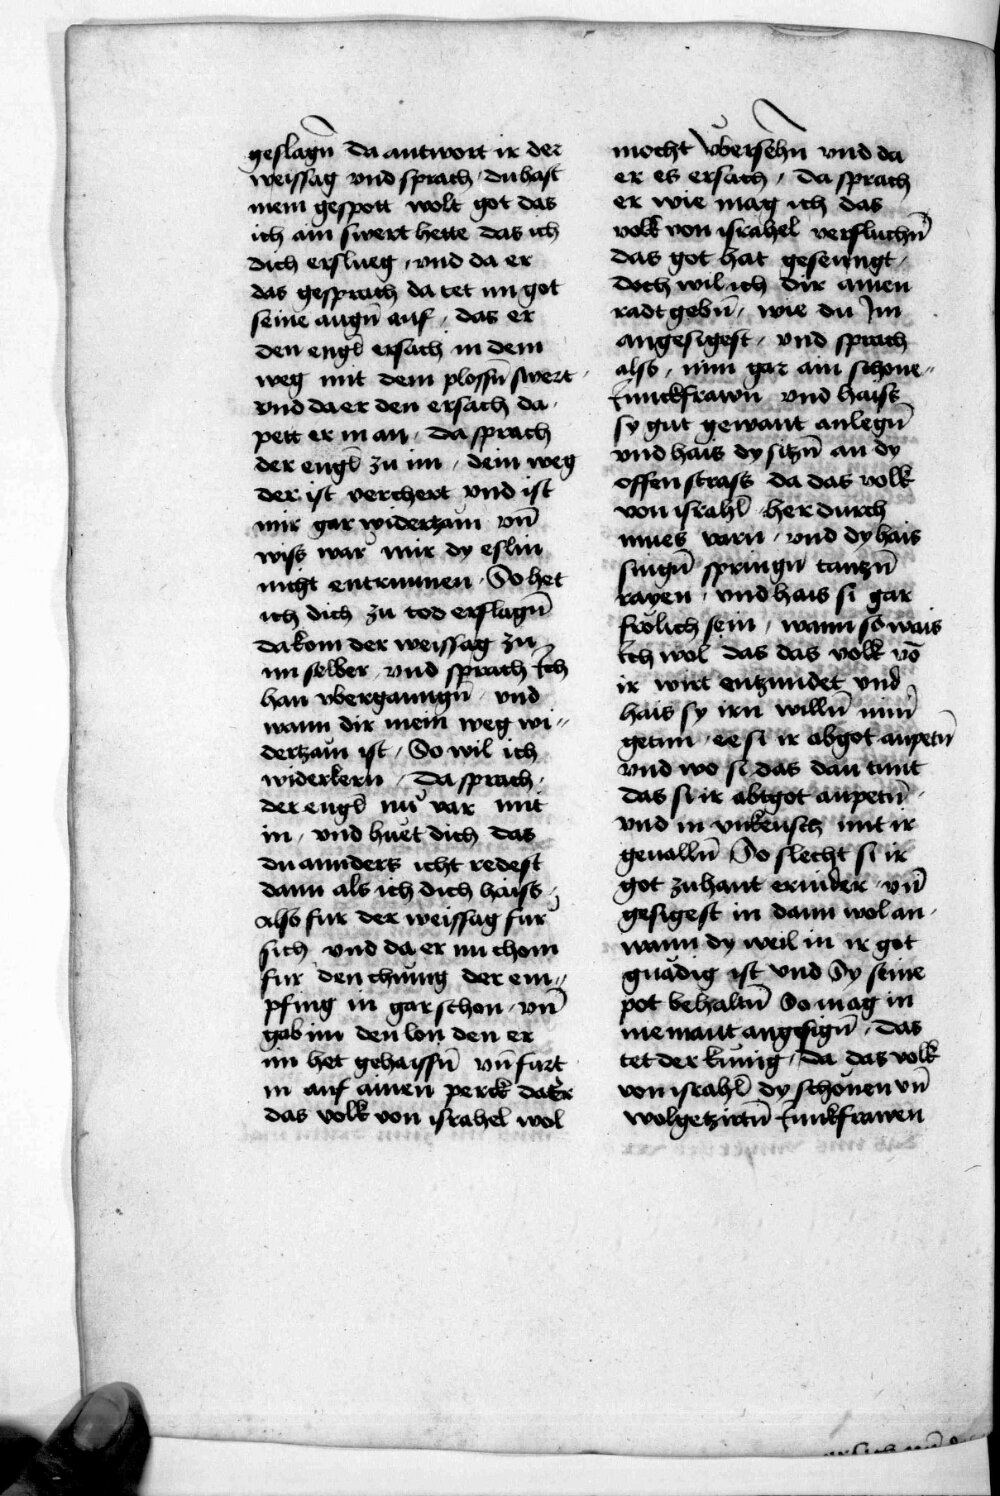 geslagn̄ Da antwort ir der
weissag vnd sprach / du hast
mein gespott wolt got das
ich ain swert hette das ich
dich erslueg / vnd da er
das gesprach da tet im got
seine augn̄ auf / das er
den engl̄ ersach in dem
weg mit dem plossn̄ swert /
vnd da er den ersach da /
pett er in an / Da sprach
der engl̄ zu im / dein weg
der ist verchert vnd ist
mir gar widerzam vn̄
wiss war mir dy eslin
nicht entrunnen / So het
ich dich zu tod erslagn̄
da kom der weissag zu
im selber / vnd sprach Ich
han vbergangn̄ / vnd
wann dir mein weg wi⸗
dertzam ist / So wil ich
widerkern / Da sprach /
der engl̄ nů var mit
in / vnd huet dich das
du annders icht redest
dann als ich dich haiss /
also fur der weissag fur
sich vnd da er nu chom
fur den chunig der em⸗
pfing in gar schon / vn̄
gab im den lon den er
im het gehaissn̄ vn̄ furt
in auf ainen perck da er
das volk von israhel wol
mocht vbersehn̄ vnd da
er es ersach / da sprach
er wie mag ich das
volk von israhel verfluchn̄
das got hat gesenngt /
doch wil ich dir ainen
radt gebn̄ / wie du Im
angesigest / vnd sprach
also / nim gar ain schone⸗
Iunckfrawn vnd haiss
sy gut gewant anlegn̄
vnd hais dy sitzn̄ an dy
offen strass da das volk
von israhl̄ her durch
mues varn / vnd dy hais
singn̄ springn tantzn̄
rayen / vnd hais si gar
frölich sein / wann so wais
Ich wol das das volk vō
ir wirt entzundet vnd
hais sy irn willn̄ nim̄
getun / ee si ir abgot anpetn̄
vnd wo si das dan tunt
das si ir abtgot anpetn̄ /
vnd in vnkeusch mit ir
geualln̄ So slecht si ir
got zuhant ernider / vn̄
gesigest in dann wol an /
wann dy weil in ir got
gnadig ist vnd Sy seine
pot behaltn̄ So mag in
niemant angesign̄ / Das
tet der kunig / da das volk
von israhl̄ dy schonen vn̄
wolgetzirtn̄ Iunkfrawen